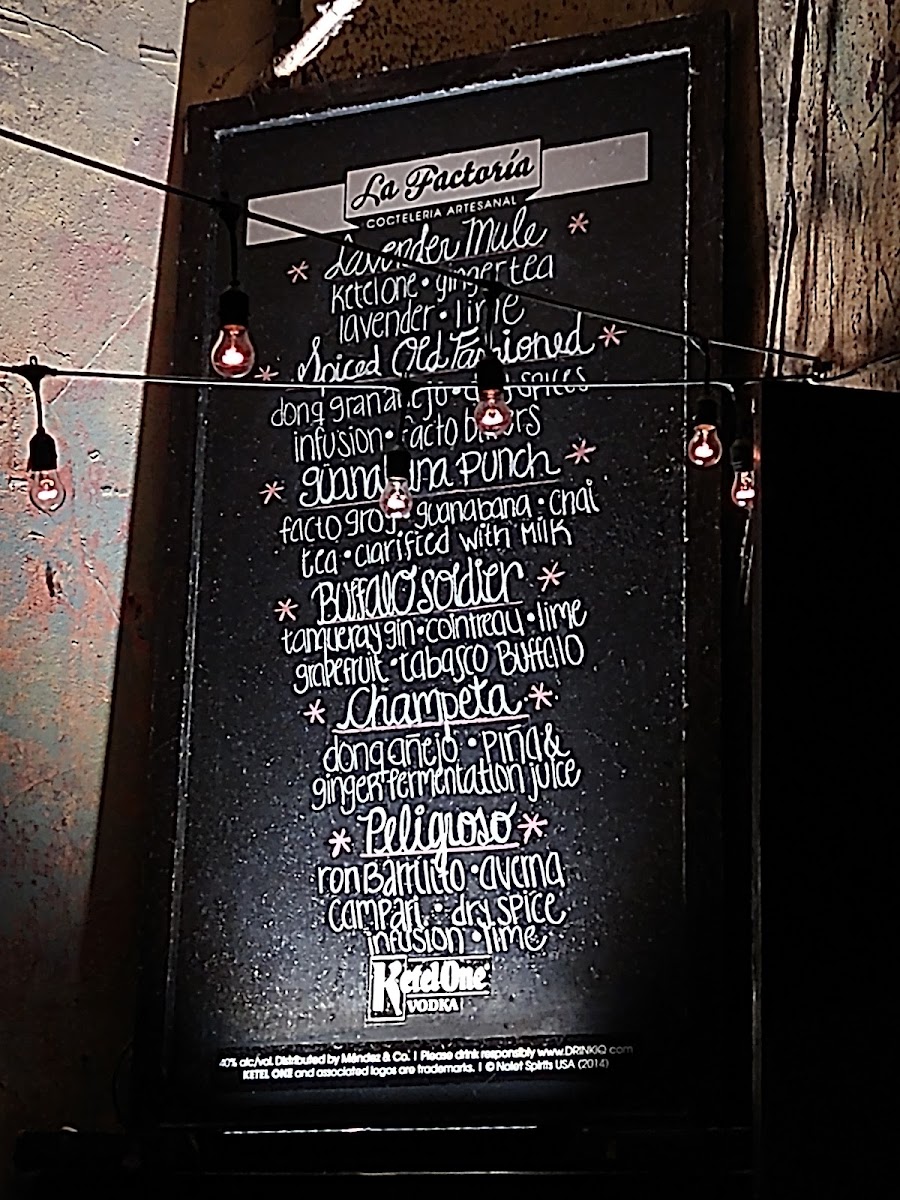 La Factoría
COCTELERIA ARTESANAL
Lavender Mule
Ketel One • ginger tea
lavender • lime
Spiced Old Fashioned
donq granañejo • dry spices
infusion • facto bitters
guanabana Punch
facto grog • guanabana • chai
tea • clarified with Milk
Buffalo Soldier
tanqueray gin • cointreau • lime
grapefruit • tabasco Buffalo
Champeta
donq añejo • piña &
ginger fermentation juice
Peligroso
ron Barrilito • averna
campari • dry spice
infusion • lime
Ketel One
VODKA
40% alc/vol. Distributed by Méndez & Co. | Please drink responsibly www.DRINKiQ.com
KETEL ONE and associated logos are trademarks. | © Nolet Spirits USA (2014)